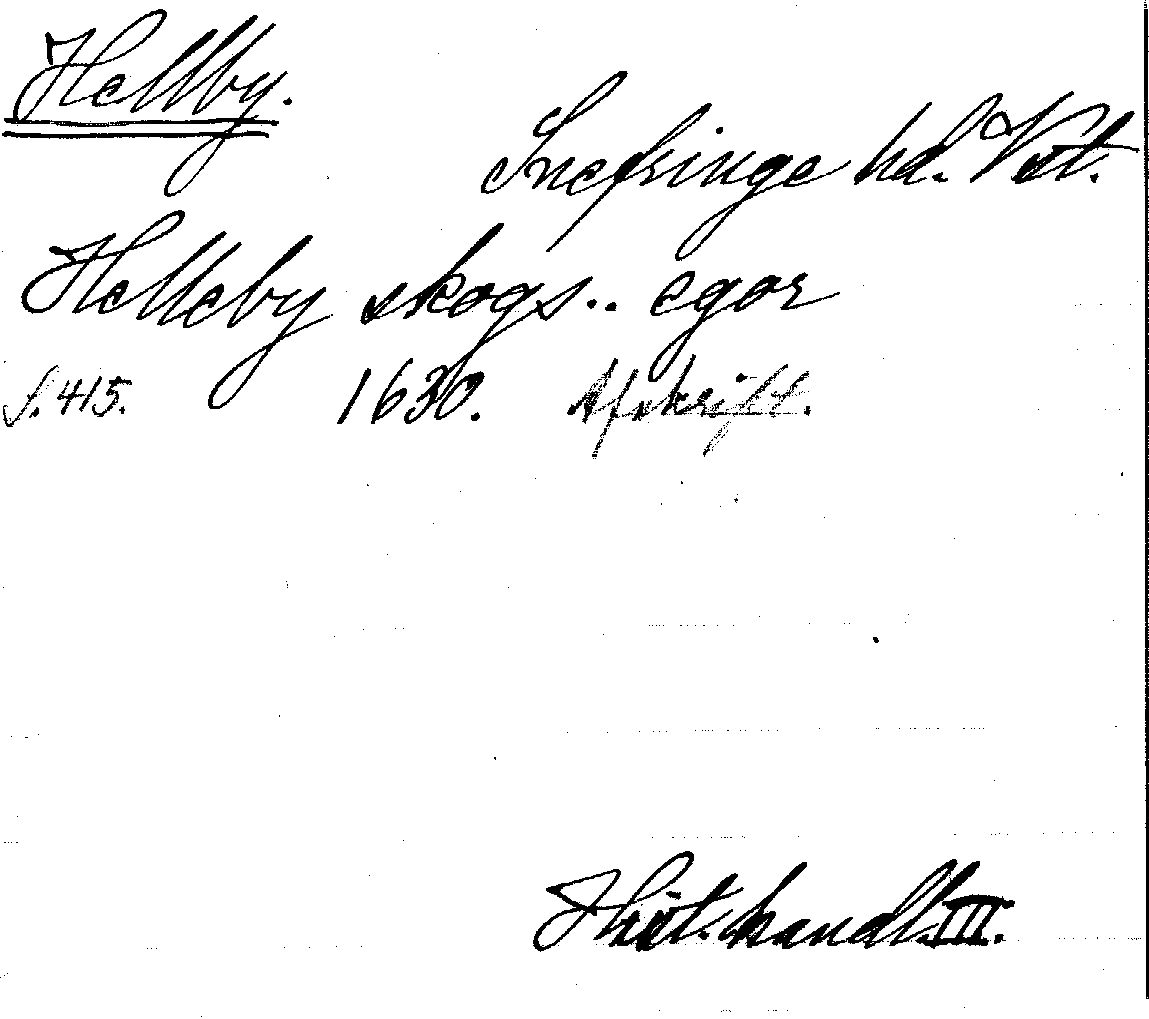 Hellby.
Snefringe hd. Vst.
Helleby skogs.. egor
S. 415. 1630. Afskrift.
Hist. handl. III.